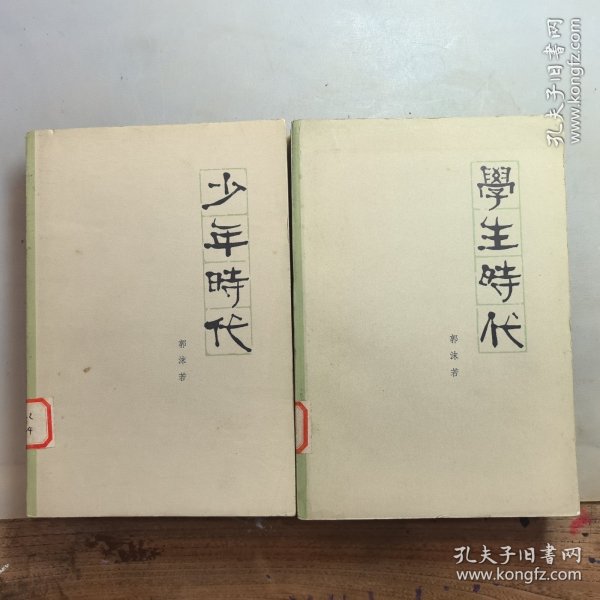 少年時代
郭沫若
學生時代
郭沫若
孔夫子旧书网
www.kongfz.com
孔夫子旧书网
www.kongfz.com